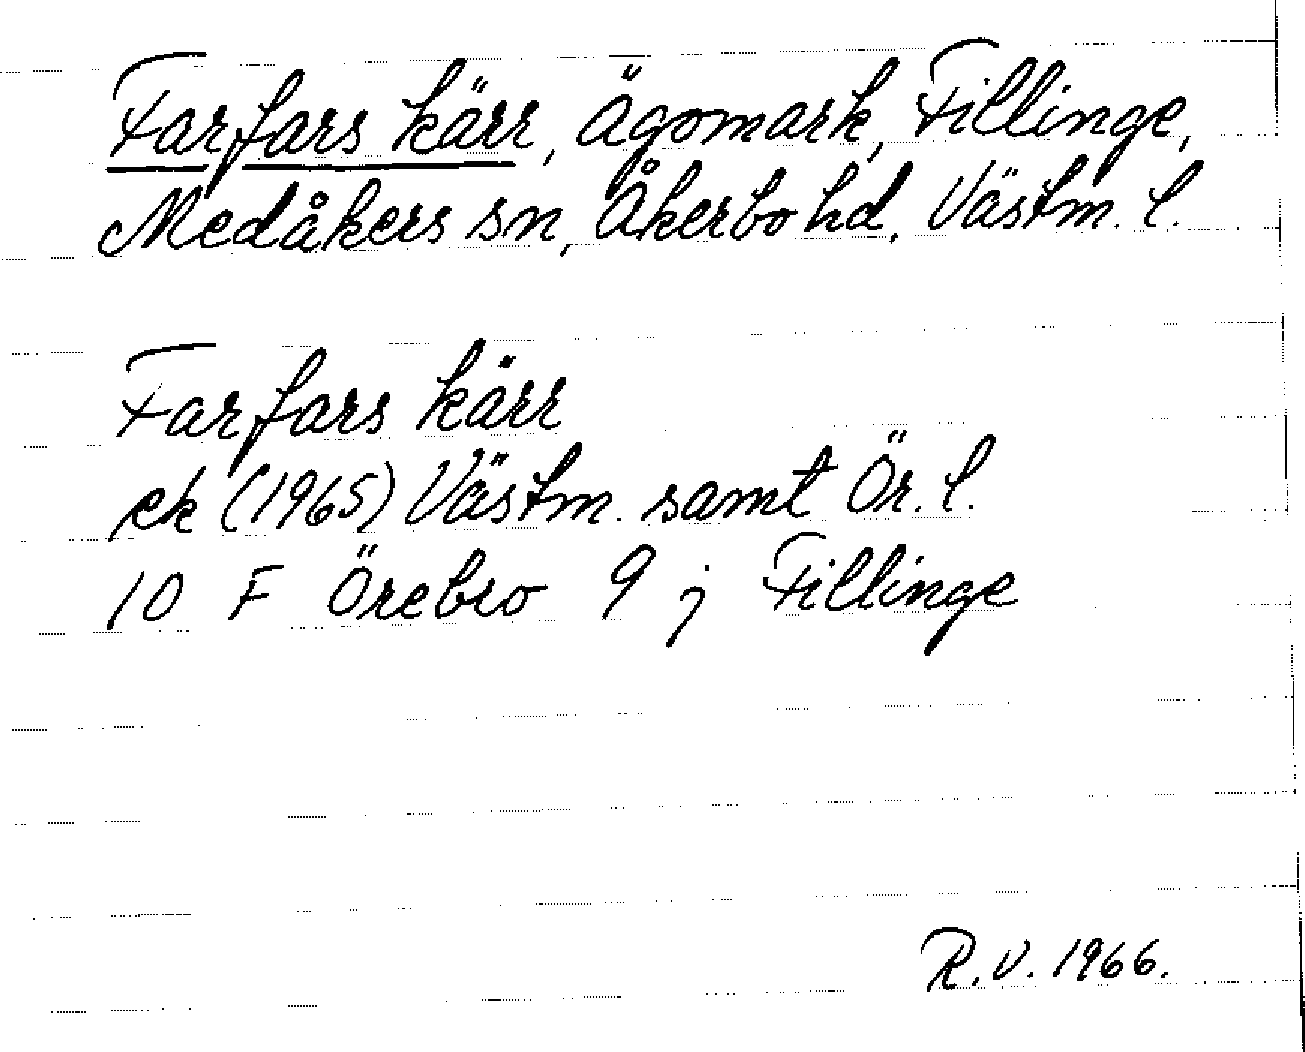 Farfars kärr, Ägomark, Fillinge,
Medåkers sn, Åkerbo hd, Västm. l.
Farfars kärr
ek (1965) Västm. samt Ör. l.
10 F Örebro 9 j Fillinge
R.V. 1966.